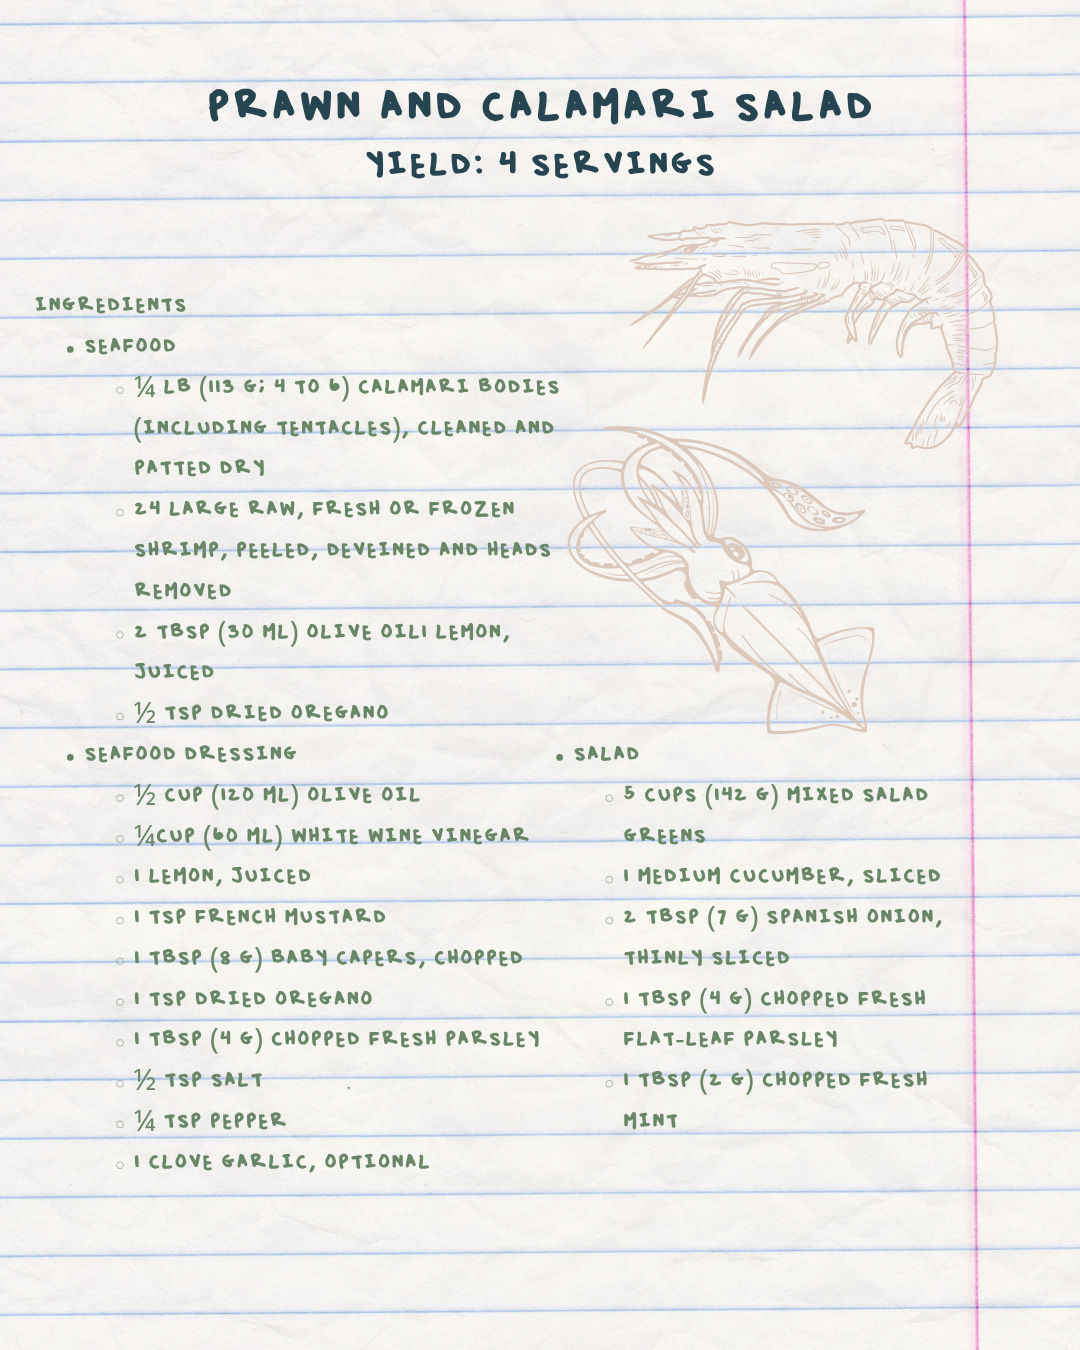 PRAWN AND CALAMARI SALAD
YIELD: 4 SERVINGS
INGREDIENTS
• SEAFOOD
○ ¼ LB (113 G; 4 TO 6) CALAMARI BODIES
(INCLUDING TENTACLES), CLEANED AND
PATTED DRY
○ 24 LARGE RAW, FRESH OR FROZEN
SHRIMP, PEELED, DEVEINED AND HEADS
REMOVED
○ 2 TBSP (30 ML) OLIVE OIL1 LEMON,
JUICED
○ ½ TSP DRIED OREGANO
• SEAFOOD DRESSING
○ ½ CUP (120 ML) OLIVE OIL
○ ¼CUP (60 ML) WHITE WINE VINEGAR
○ 1 LEMON, JUICED
○ 1 TSP FRENCH MUSTARD
○ 1 TBSP (8 G) BABY CAPERS, CHOPPED
○ 1 TSP DRIED OREGANO
○ 1 TBSP (4 G) CHOPPED FRESH PARSLEY
○ ½ TSP SALT
○ ¼ TSP PEPPER
○ 1 CLOVE GARLIC, OPTIONAL
• SALAD
○ 5 CUPS (142 G) MIXED SALAD
GREENS
○ 1 MEDIUM CUCUMBER, SLICED
○ 2 TBSP (7 G) SPANISH ONION,
THINLY SLICED
○ 1 TBSP (4 G) CHOPPED FRESH
FLAT-LEAF PARSLEY
○ 1 TBSP (2 G) CHOPPED FRESH
MINT